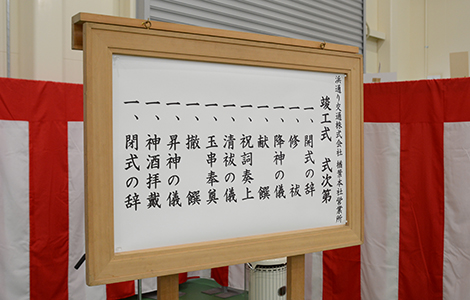 浜通り交通株式会社 楢葉本社営業所
竣工式 式次第
一、開式の辞
一、修祓
一、降神の儀
一、献饌
一、祝詞奏上
一、清祓の儀
一、玉串奉奠
一、撤饌
一、昇神の儀
一、神酒拝戴
一、閉式の辞